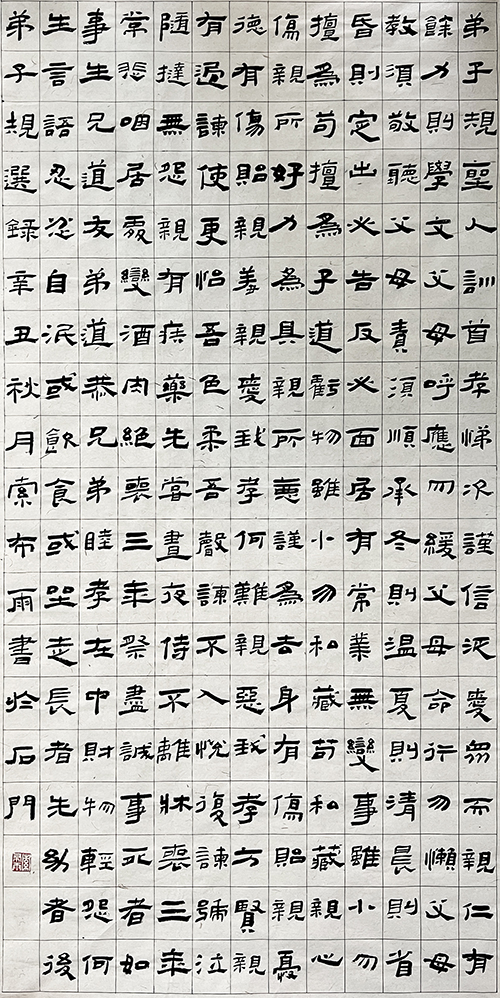 弟子規聖人訓首孝悌次謹信汎愛眾而親仁有
餘力則學文父母呼應勿緩父母命行勿懶父母
教須敬聽父母責須順承冬則溫夏則清晨則省
昏則定出必告反必面居有常業無變事雖小勿
擅為苟擅為子道虧物雖小勿私藏苟私藏親心
傷親所好力為具親所惡謹為去身有傷貽親憂
德有傷貽親羞親愛我孝何難親惡我孝方賢親
有過諫使更怡吾色柔吾聲諫不入悅復諫號泣
隨撻無怨親有疾藥先嘗晝夜侍不離牀喪三年
常悲咽居處變酒肉絕喪三年祭盡誠事死者如
事生兄道友弟道恭兄弟睦孝在中財物輕怨何
生言語忍忿自泯或飲食或坐走長者先幼者後
弟子規選錄辛丑秋月索布雨書於石門